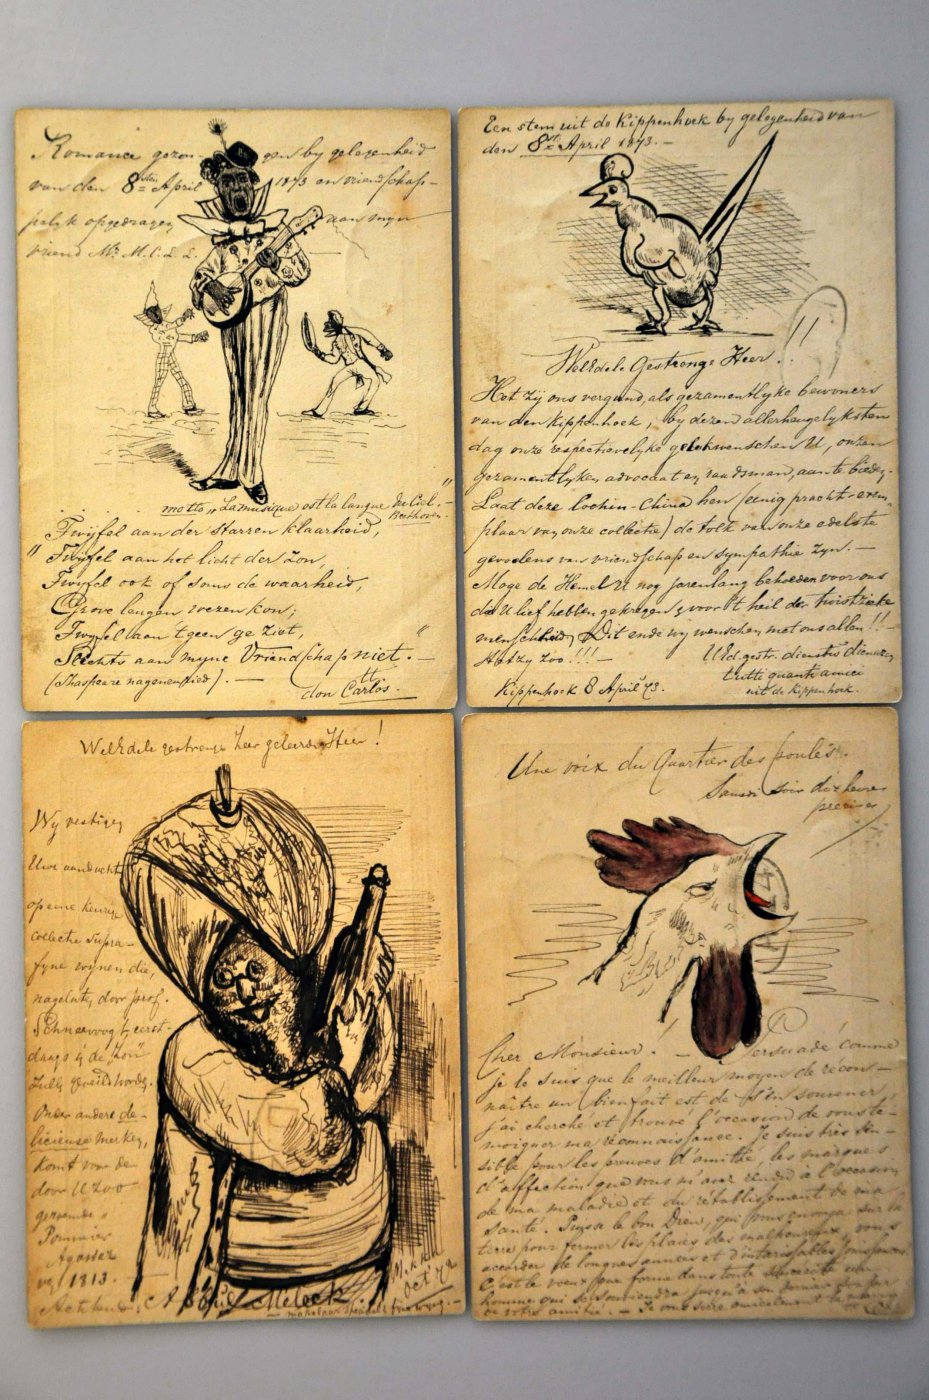 Romance gezon gen by gelegenheid
van den 8sten April 1873 en vriendschap-
pelyk opgedragen aan myn
vriend Mr. M. C. L. L.
motto „La musique est la langue du Ciel.–"
Beethoven.
"Twyfel aan der starren klaarheid,
Twyfel aan het licht der Zon,
Twyfel ook of soms de waarheid,
Grove leugen wezen kon;
Twyfel aan 't geen ge ziet,
Slechts aan myne Vriendschap niet. –"
(Shaspeare nagenevied). –
don Carlos. –
Een stem uit de Kippenhoek by gelegenheid van
den 8ste April 1873. –
WelEdele Gestrenge Heer..!!
Het zy ons vergund, als gezamentlyke bewoners
van den Kippenhoek, by dezen allerheugelyksten
dag onze respectievelyke gelukwenschen U, onzen
gezamentlyken advocaat en raadsman, aan te bieden.
Laat deze Cochin-China hen (eenig pracht-exem-
plaar van onze collectie) de tolk van onze edelste
gevoelens van vriendschap en sympathie zyn. –
Moge de Hemel U nog jarenlang behoeden voor ons
die U lief hebben gekregen & voor 't heil der twistzieke
menschheid, Dit ende wy wenschen met ons allen!! –
Het zy zoo!!! –
UEd. gestr. dienstw dienaren
tutti quanti amici
uit de Kippenhoek.
Kippenhoek 8 April 73.
WelEdele gestrenge zeer geleerde Heer!
Wy vestigen
Uwe aandacht
op eene keurige
collectie supra-
fyne wynen die,
nagelaten door prof.
Schneevoogt, eerst-
daags in de „Zon"
zullen geveild worden.
Onder andere de-
licieuse merken,
komt voor de
door U zoo
genoemde „
Pommies
Agassaz
van 1813.
Achtend.
Abdul Meleck
makelaar
Mekka
Oct 72
Une voix du Quartier des poules.
Samedi soir dix heures
precises
Cher Monsieur. – Persuadé comme
je le suis que le meilleur moyen de récon-
naître un bienfait est de s'en souvenir,
j'ai cherché et trouvé l'occasion de vous té-
moigner ma réconnaissance. Je suis très sen-
sible pour les preuves d'amitié, les marques
d'affection que vous m'avez rendu à l'occasion
de ma maladie et du rétablissement de ma
santé. Puisse le bon Dieu, qui vous envoya sur la
terre pour fermer les plaies des malheureux, vous
accorder de longues années et d'interissables jouissances.
C'est le voeux que forme dans toute sincerité un
homme qui se souviendra jusqu'à son dernier
de votre amitié. – Je vous serre amicalement la main